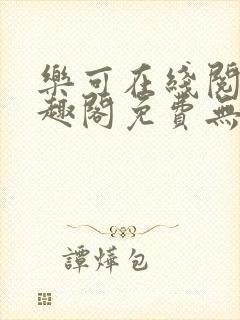 樂可在綫閱
趣閣免費無
譚燁包